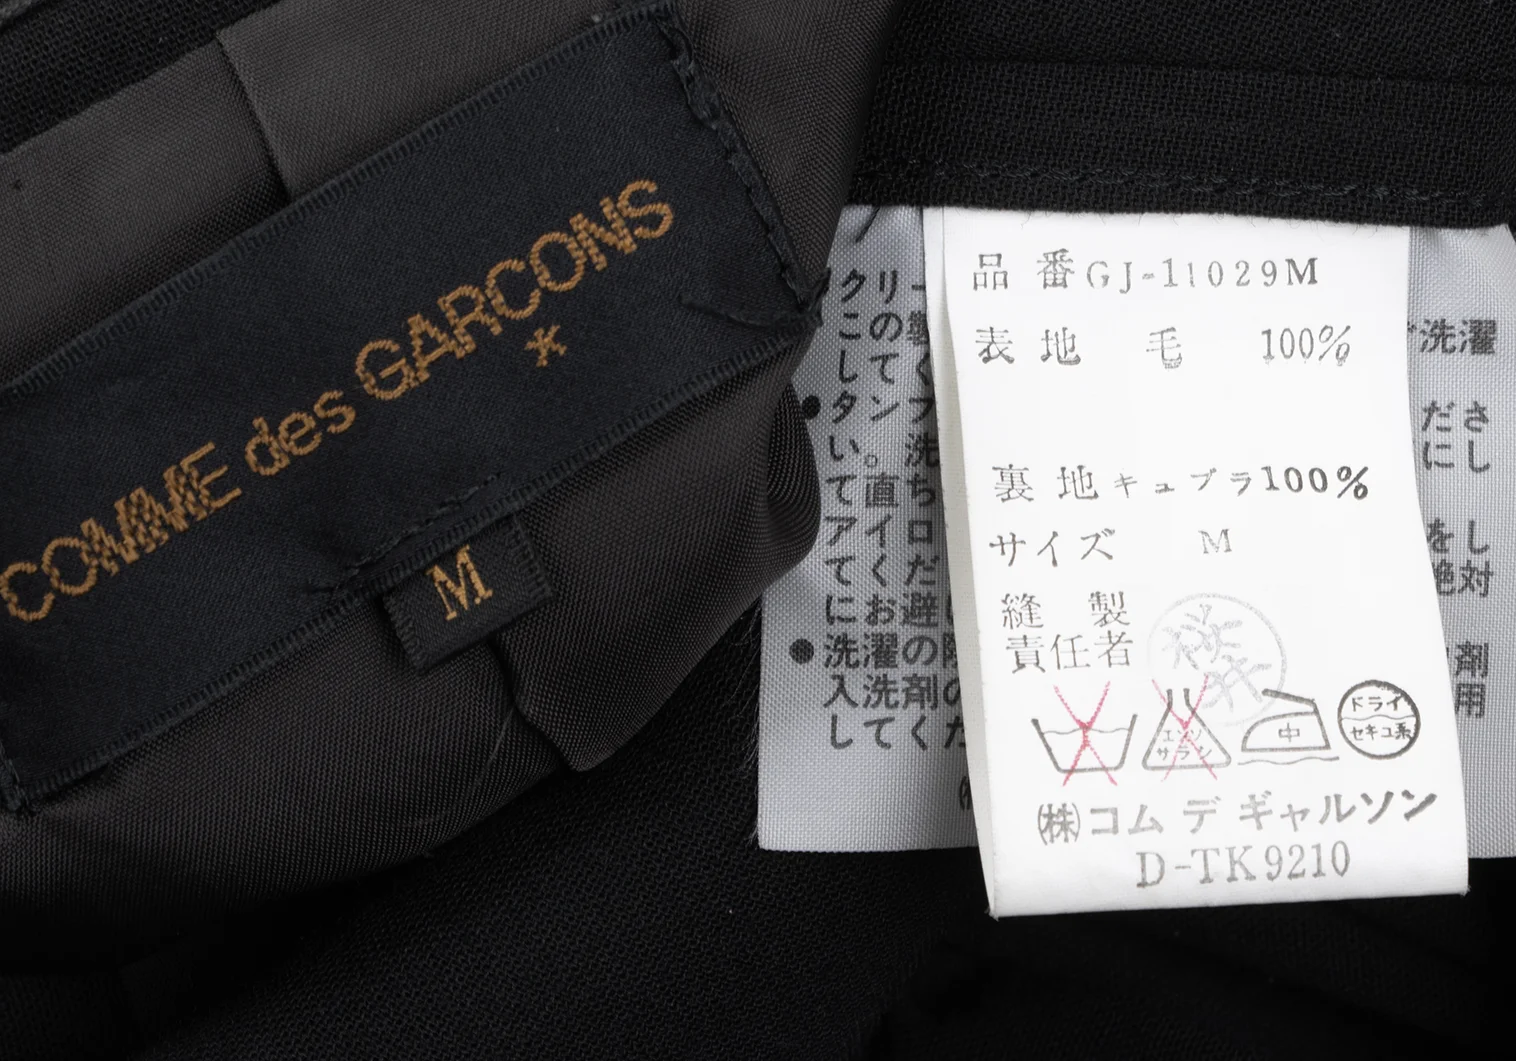 COMME des GARCONS
*
M
品番 GJ-11029M
表地 毛 100%
裏地 キュプラ 100%
サイズ M
縫製
責任者
エンソ
サラシ
中
ドライ
セキユ系
㈱コム デ ギャルソン
D-TK9210
クリー
このて
して
●タン
い。洗
て直ち
アイロ
てくだ
にお避
●洗濯の
入洗剤
してく
洗濯
ださ
にし
をし
絶対
剤
用